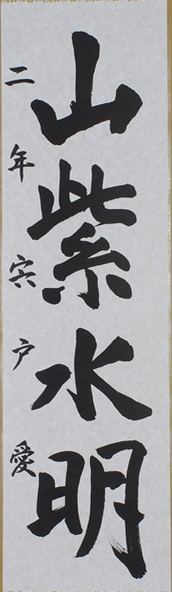 山紫水明
二年宍戸愛